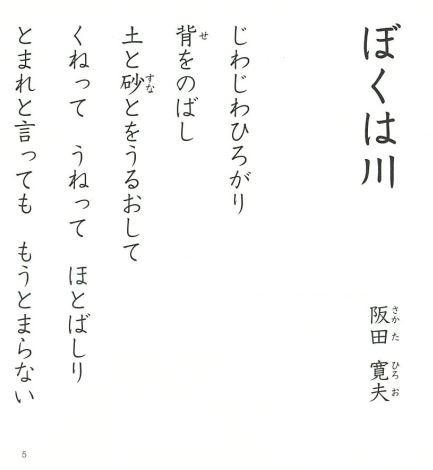 ぼくは川
阪田 寛夫
さか た ひろ お
じわじわひろがり
背をのばし
せ
土と砂とをうるおして
すな
くねって うねって ほとばしり
とまれと言っても もうとまらない
5